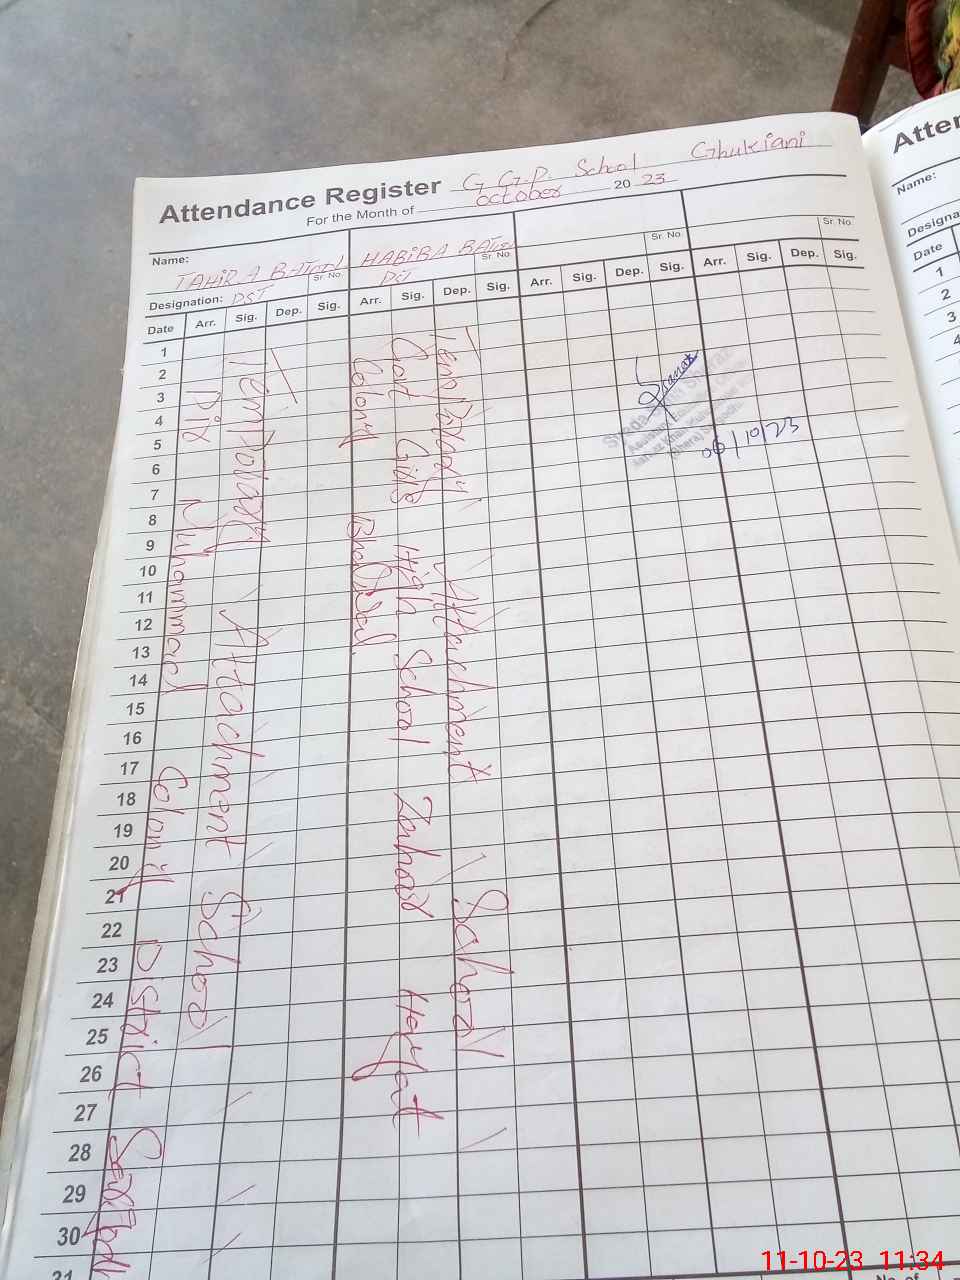 Attendance Register G G.P. School Ghukiani
For the Month of October 20 23
Name: TAHIRA BATOOL Sr. No.
Designation: PST
HABIBA BATOOL Sr. No.
PST
Sr. No.
Sr. No.
Date Arr. Sig. Dep. Sig. Arr. Sig. Dep. Sig. Arr. Sig. Dep. Sig. Arr. Sig. Dep. Sig.
1
2
3
4
5
6
7
8
9
10
11
12
13
14
15
16
17
18
19
20
21
22
23
24
25
26
27
28
29
30
31
Temporary Attachment School
Pir Muhammad Colony District
Temporary Attachment School
Govt Girls High School
Colony
06/10/23
No. of
Name:
Date Arr.
1
2
3
4
11-10-23 11:34